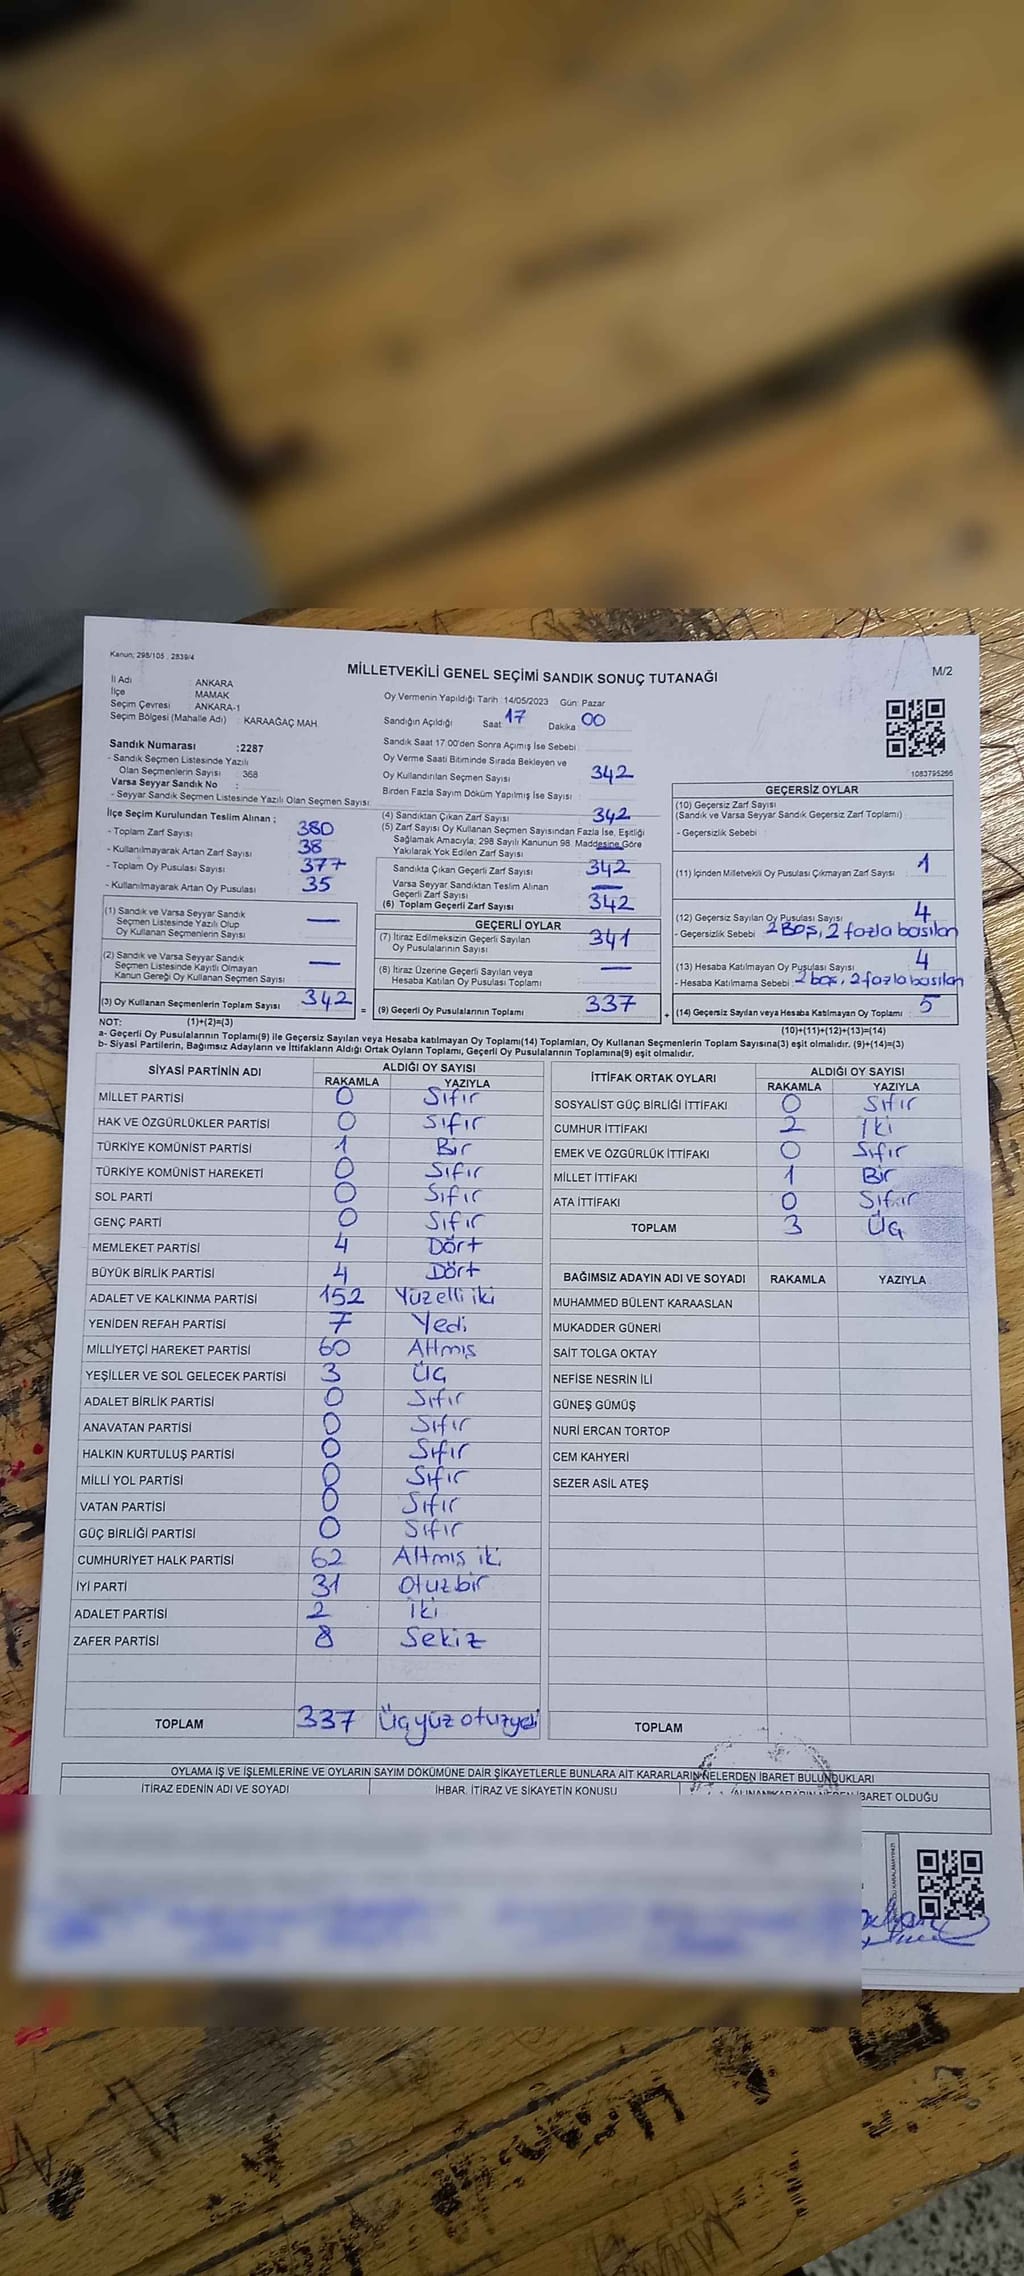 Kanun; 298/105 , 2839/4
MİLLETVEKİLİ GENEL SEÇİMİ SANDIK SONUÇ TUTANAĞI
M/2
İl Adı : ANKARA
İlçe : MAMAK
Seçim Çevresi : ANKARA-1
Seçim Bölgesi (Mahalle Adı) : KARAAĞAÇ MAH.
Oy Vermenin Yapıldığı Tarih : 14/05/2023 Gün: Pazar
Sandığın Açıldığı Saat 17 Dakika 00
Sandık Saat 17:00'den Sonra Açılmış İse Sebebi :
Oy Verme Saati Bitiminde Sırada Bekleyen ve
Oy Kullandırılan Seçmen Sayısı 342
Birden Fazla Sayım Döküm Yapılmış İse Sayısı :
Sandık Numarası :2287
- Sandık Seçmen Listesinde Yazılı
Olan Seçmenlerin Sayısı : 368
Varsa Seyyar Sandık No :
- Seyyar Sandık Seçmen Listesinde Yazılı Olan Seçmen Sayısı:
İlçe Seçim Kurulundan Teslim Alınan ;
- Toplam Zarf Sayısı 380
- Kullanılmayarak Artan Zarf Sayısı 38
- Toplam Oy Pusulası Sayısı 377
- Kullanılmayarak Artan Oy Pusulası 35
(1) Sandık ve Varsa Seyyar Sandık
Seçmen Listesinde Yazılı Olup
Oy Kullanan Seçmenlerin Sayısı —
(2) Sandık ve Varsa Seyyar Sandık
Seçmen Listesinde Kayıtlı Olmayan
Kanun Gereği Oy Kullanan Seçmen Sayısı —
(3) Oy Kullanan Seçmenlerin Toplam Sayısı 342
(1)+(2)=(3)
(4) Sandıktan Çıkan Zarf Sayısı 342
(5) Zarf Sayısı Oy Kullanan Seçmen Sayısından Fazla İse, Eşitliği
Sağlamak Amacıyla; 298 Sayılı Kanunun 98. Maddesine Göre
Yakılarak Yok Edilen Zarf Sayısı —
Sandıkta Çıkan Geçerli Zarf Sayısı 342
Varsa Seyyar Sandıktan Teslim Alınan
Geçerli Zarf Sayısı —
(6) Toplam Geçerli Zarf Sayısı 342
GEÇERLİ OYLAR
(7) İtiraz Edilmeksizin Geçerli Sayılan
Oy Pusulalarının Sayısı 341
(8) İtiraz Üzerine Geçerli Sayılan veya
Hesaba Katılan Oy Pusulası Toplamı —
= (9) Geçerli Oy Pusulalarının Toplamı 337 +
1083795266
GEÇERSİZ OYLAR
(10) Geçersiz Zarf Sayısı
(Sandık ve Varsa Seyyar Sandık Geçersiz Zarf Toplamı)
- Geçersizlik Sebebi :
(11) İçinden Milletvekili Oy Pusulası Çıkmayan Zarf Sayısı 1
(12) Geçersiz Sayılan Oy Pusulası Sayısı 4
- Geçersizlik Sebebi 2 Boş, 2 fazla basılan
(13) Hesaba Katılmayan Oy Pusulası Sayısı 4
- Hesaba Katılmama Sebebi 2 boş, 2 fazla basılan
(14) Geçersiz Sayılan veya Hesaba Katılmayan Oy Toplamı 5
(10)+(11)+(12)+(13)=(14)
NOT:
a- Geçerli Oy Pusulalarının Toplamı(9) ile Geçersiz Sayılan veya Hesaba katılmayan Oy Toplamı(14) Toplamları, Oy Kullanan Seçmenlerin Toplam Sayısına(3) eşit olmalıdır. (9)+(14)=(3)
b- Siyasi Partilerin, Bağımsız Adayların ve İttifakların Aldığı Ortak Oyların Toplamı, Geçerli Oy Pusulalarının Toplamına(9) eşit olmalıdır.
SİYASİ PARTİNİN ADI ALDIĞI OY SAYISI
RAKAMLA YAZIYLA
MİLLET PARTİSİ 0 Sıfır
HAK VE ÖZGÜRLÜKLER PARTİSİ 0 Sıfır
TÜRKİYE KOMÜNİST PARTİSİ 1 Bir
TÜRKİYE KOMÜNİST HAREKETİ 0 Sıfır
SOL PARTİ 0 Sıfır
GENÇ PARTİ 0 Sıfır
MEMLEKET PARTİSİ 4 Dört
BÜYÜK BİRLİK PARTİSİ 4 Dört
ADALET VE KALKINMA PARTİSİ 152 Yüzelli iki
YENİDEN REFAH PARTİSİ 7 Yedi
MİLLİYETÇİ HAREKET PARTİSİ 60 Altmış
YEŞİLLER VE SOL GELECEK PARTİSİ 3 Üç
ADALET BİRLİK PARTİSİ 0 Sıfır
ANAVATAN PARTİSİ 0 Sıfır
HALKIN KURTULUŞ PARTİSİ 0 Sıfır
MİLLİ YOL PARTİSİ 0 Sıfır
VATAN PARTİSİ 0 Sıfır
GÜÇ BİRLİĞİ PARTİSİ 0 Sıfır
CUMHURİYET HALK PARTİSİ 62 Altmış iki
İYİ PARTİ 31 Otuzbir
ADALET PARTİSİ 2 İki
ZAFER PARTİSİ 8 Sekiz
TOPLAM 337 Üçyüzotuzyedi
İTTİFAK ORTAK OYLARI ALDIĞI OY SAYISI
RAKAMLA YAZIYLA
SOSYALİST GÜÇ BİRLİĞİ İTTİFAKI 0 Sıfır
CUMHUR İTTİFAKI 2 İki
EMEK VE ÖZGÜRLÜK İTTİFAKI 0 Sıfır
MİLLET İTTİFAKI 1 Bir
ATA İTTİFAKI 0 Sıfır
TOPLAM 3 Üç
BAĞIMSIZ ADAYIN ADI VE SOYADI RAKAMLA YAZIYLA
MUHAMMED BÜLENT KARAASLAN
MUKADDER GÜNERİ
SAİT TOLGA OKTAY
NEFİSE NESRİN İLİ
GÜNEŞ GÜMÜŞ
NURİ ERCAN TORTOP
CEM KAHYERİ
SEZER ASİL ATEŞ
TOPLAM
OYLAMA İŞ VE İŞLEMLERİNE VE OYLARIN SAYIM DÖKÜMÜNE DAİR ŞİKAYETLERLE BUNLARA AİT KARARLARIN NELERDEN İBARET BULUNDUKLARI
İTİRAZ EDENİN ADI VE SOYADI İHBAR, İTİRAZ VE ŞİKAYETİN KONUSU ALINAN KARARIN NEDEN İBARET OLDUĞU